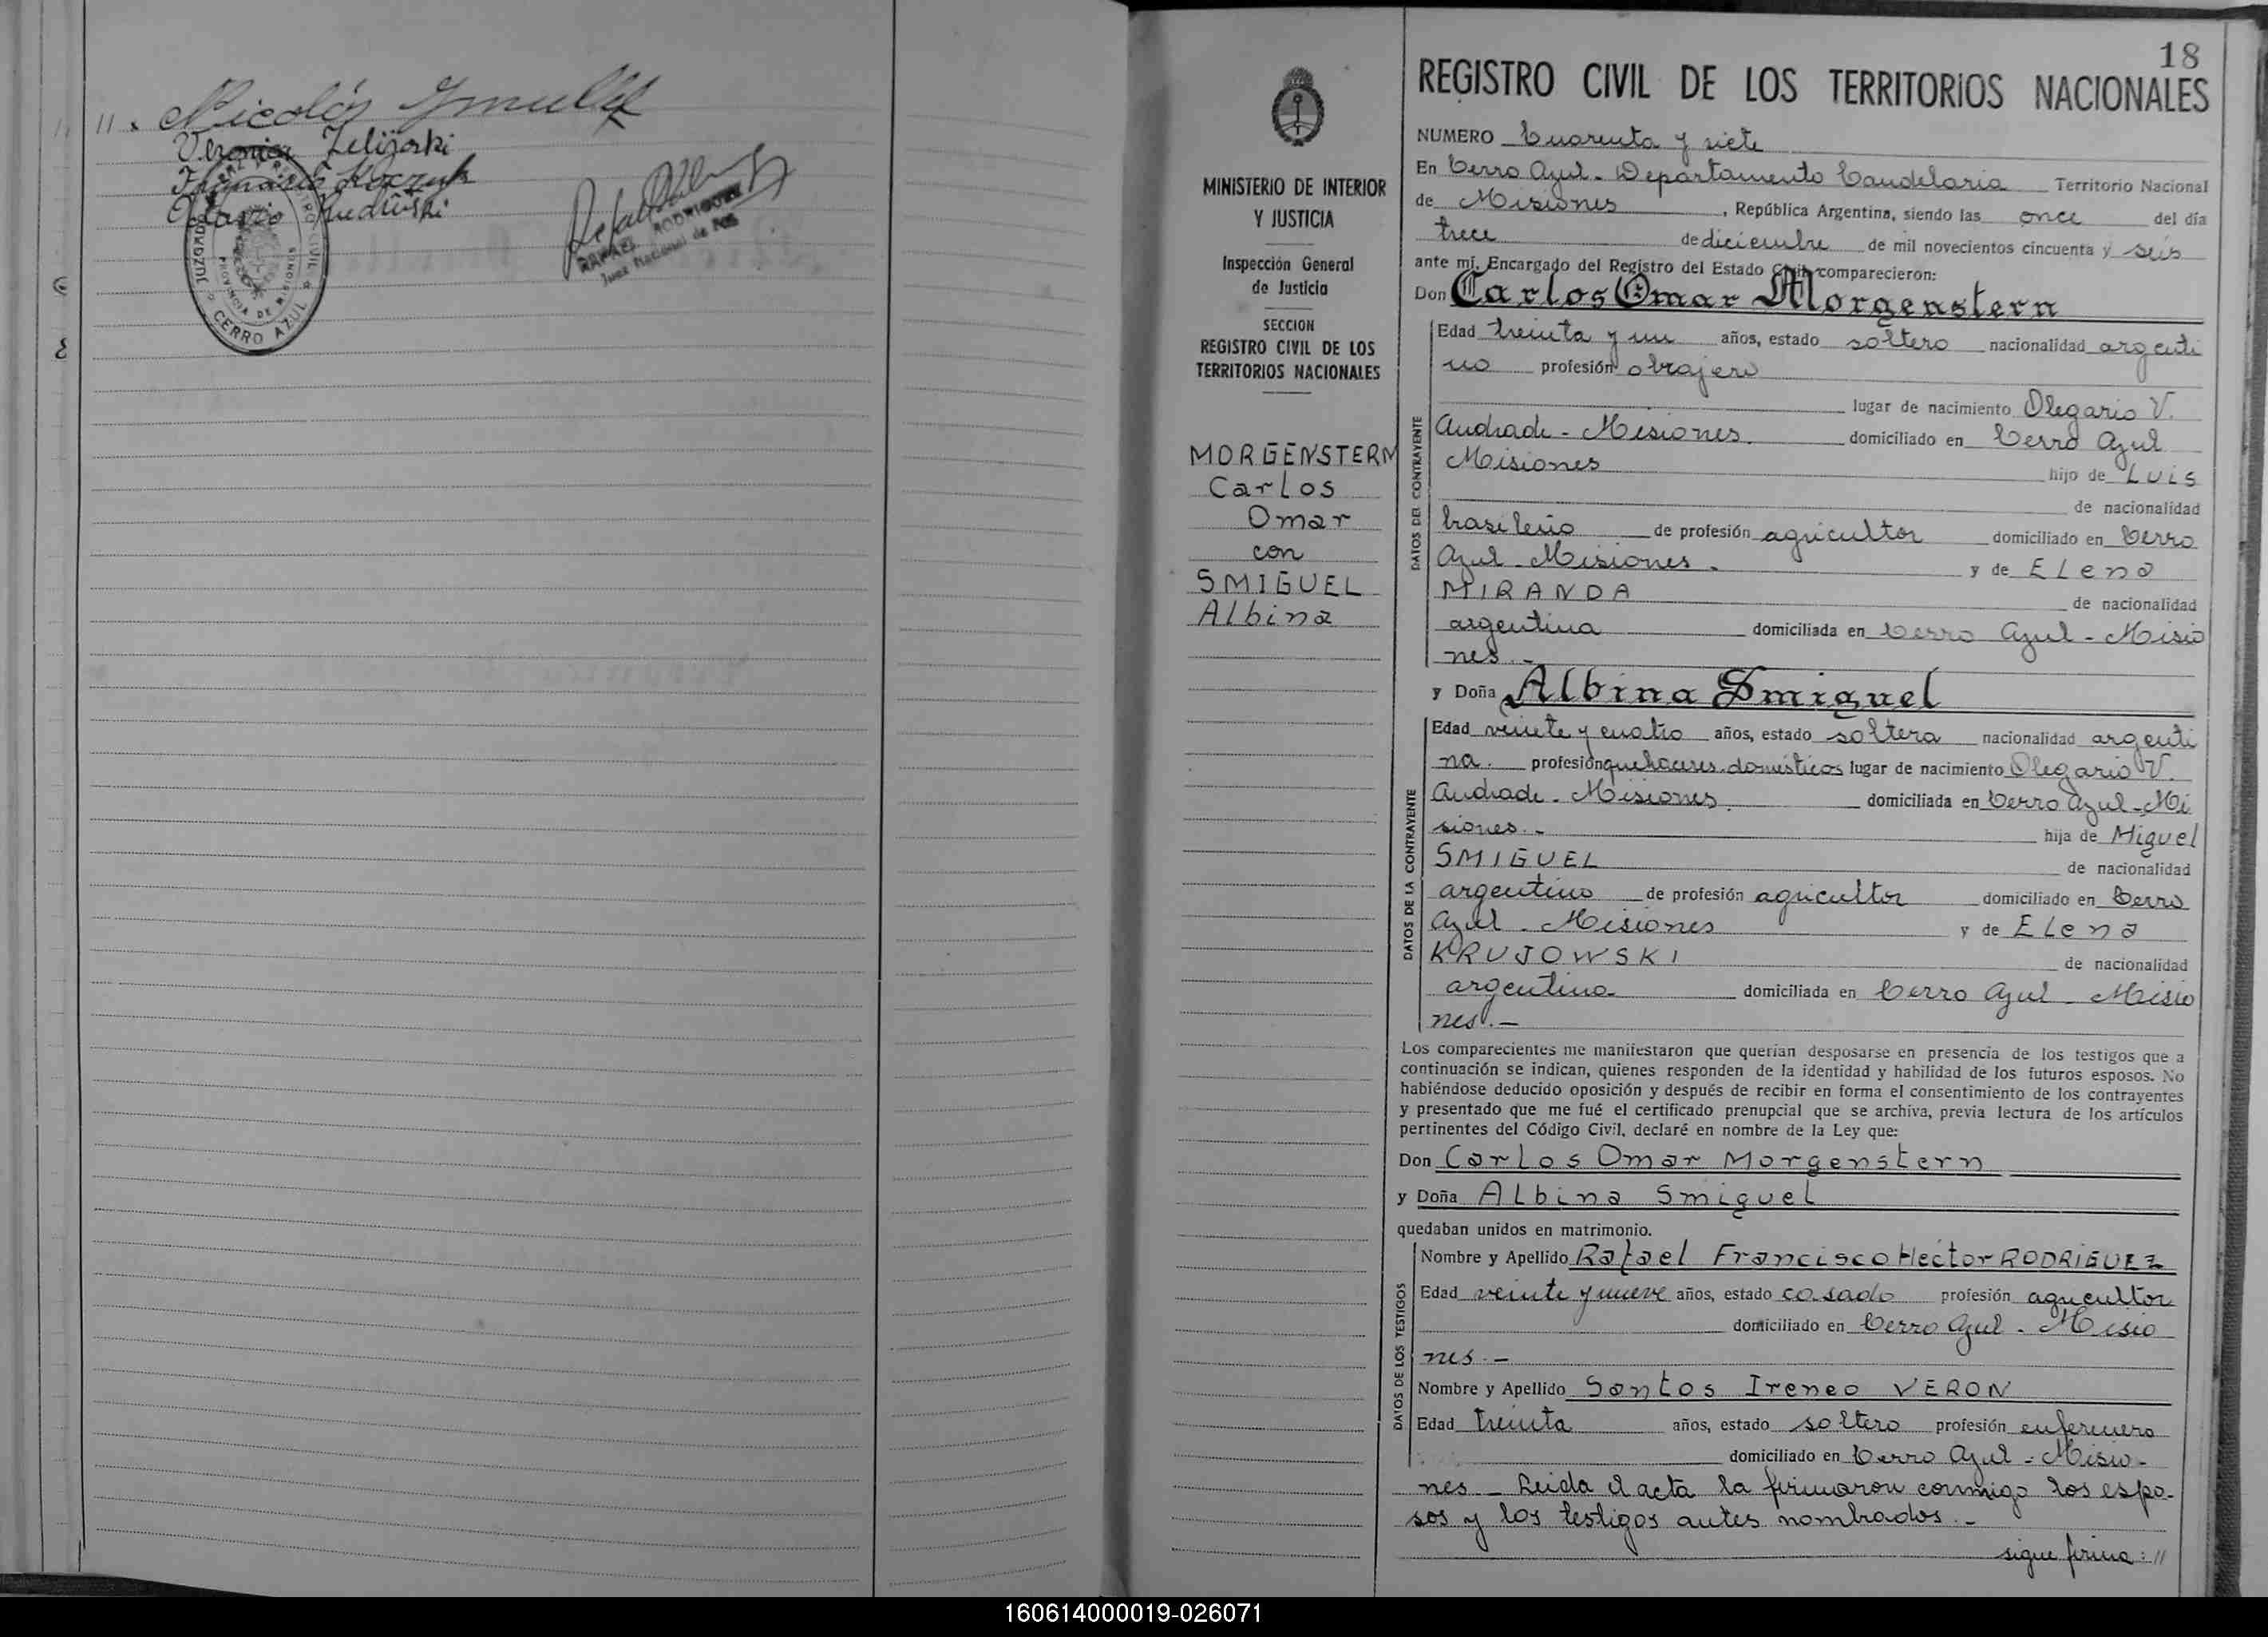 11. Nicolás
Veronica Zelisñski
JUZGADO
REGISTRO CIVIL
PROVINCIA DE MISIONES
CERRO AZUL
RAFAEL RODRIGUEZ
Juez Nacional de Paz
MINISTERIO DE INTERIOR
Y JUSTICIA
Inspección General
de Justicia
SECCION
REGISTRO CIVIL DE LOS
TERRITORIOS NACIONALES
MORGENSTERN
Carlos
Omar
con
SMIGUEL
Albina
18
REGISTRO CIVIL DE LOS TERRITORIOS NACIONALES
NUMERO Cuarenta y siete
En Cerro Azul - Departamento Candelaria Territorio Nacional
de Misiones, República Argentina, siendo las once del día
trece de diciembre de mil novecientos cincuenta y seis
ante mí, Encargado del Registro del Estado Civil, comparecieron:
Don Carlos Omar Morgenstern
DATOS DEL CONTRAYENTE
Edad treinta y un años, estado soltero nacionalidad argenti
no profesión obrajero
lugar de nacimiento Olegario V.
Andrade - Misiones. domiciliado en Cerro Azul
Misiones hijo de Luis
de nacionalidad
brasileño de profesión agricultor domiciliado en Cerro
Azul - Misiones. y de Elena
MIRANDA de nacionalidad
argentina domiciliada en Cerro Azul - Misio
nes.-
y Doña Albina Smiguel
DATOS DE LA CONTRAYENTE
Edad veinte y cuatro años, estado soltera nacionalidad argenti
na. profesión quehaceres domésticos lugar de nacimiento Olegario V.
Andrade - Misiones. domiciliada en Cerro Azul - Mi
siones.- hija de Miguel
SMIGUEL de nacionalidad
argentino de profesión agricultor domiciliado en Cerro
Azul - Misiones y de Elena
KRUJOWSKI de nacionalidad
argentina domiciliada en Cerro Azul - Misio
nes.-
Los comparecientes me manifestaron que querían desposarse en presencia de los testigos que a
continuación se indican, quienes responden de la identidad y habilidad de los futuros esposos. No
habiéndose deducido oposición y después de recibir en forma el consentimiento de los contrayentes
y presentado que me fué el certificado prenupcial que se archiva, previa lectura de los artículos
pertinentes del Código Civil, declaré en nombre de la Ley que:
Don Carlos Omar Morgenstern
y Doña Albina Smiguel
quedaban unidos en matrimonio.
DATOS DE LOS TESTIGOS
Nombre y Apellido Rafael Francisco Hector RODRIGUEZ
Edad veinte y nueve años, estado casado profesión agricultor
domiciliado en Cerro Azul - Misio
nes.-
Nombre y Apellido Santos Ireneo VERON
Edad treinta años, estado soltero profesión enfermero
domiciliado en Cerro Azul - Misio-
nes - Leida el acta la firmaron conmigo los espo-
sos y los testigos antes nombrados.-
sigue firma: //
160614000019-026071